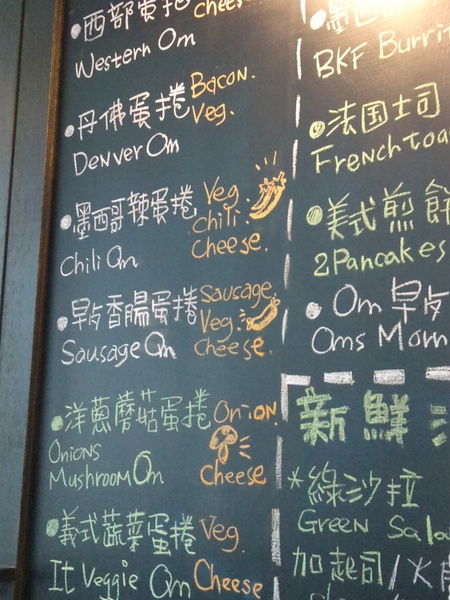 西部蛋捲
chees
Western Om
丹佛蛋捲
Bacon.
Veg.
Denver Om
墨西哥辣蛋捲
Veg
chili
Cheese.
Chili Om
香腸蛋捲
Sausage.
Veg.
cheese.
Sausage Om
洋蔥蘑菇蛋捲
Onion.
Cheese
Onions
Mushroom Om
義式蔬菜蛋捲
Veg.
Cheese
It Veggie Om
墨西
BKF Burrit
法国土司
French toa
美式煎餅
2 Pancakes
Om
Oms Mom
新鮮
*綠沙拉
Green Sala
加起司/火